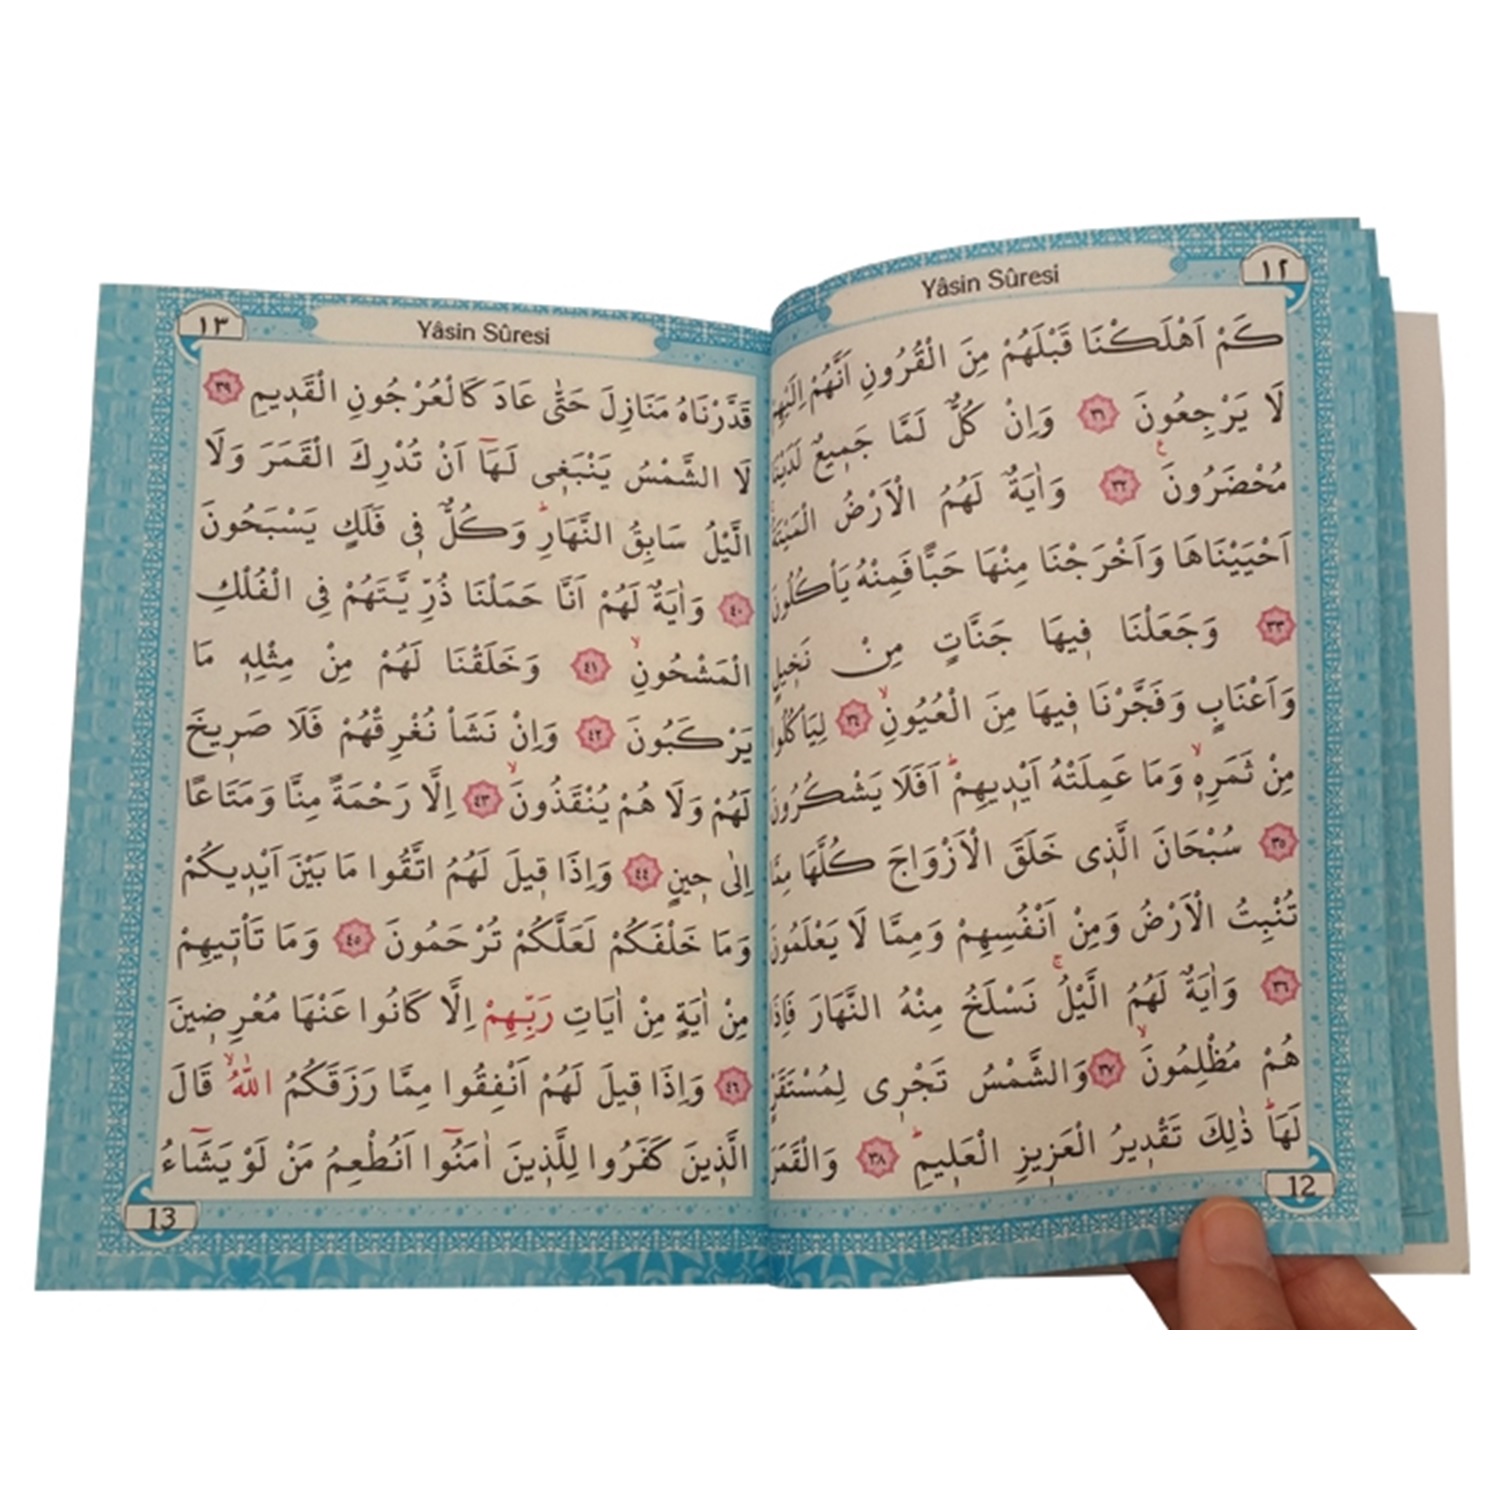 Yâsin Sûresi ١٢
كَمْ اَهْلَكْنَا قَبْلَهُمْ مِنَ الْقُرُونِ اَنَّهُمْ اِلَيْهِمْ
لَا يَرْجِعُونَ ٣١ وَاِنْ كُلٌّ لَمَّا جَمٖيعٌ لَدَيْنَا
مُحْضَرُونَۚ ٣٢ وَاٰيَةٌ لَهُمُ الْاَرْضُ الْمَيْتَةُ
اَحْيَيْنَاهَا وَاَخْرَجْنَا مِنْهَا حَبًّا فَمِنْهُ يَاْكُلُونَ
٣٣ وَجَعَلْنَا فٖيهَا جَنَّاتٍ مِنْ نَخٖيلٍ
وَاَعْنَابٍ وَفَجَّرْنَا فٖيهَا مِنَ الْعُيُونِۙ ٣٤ لِيَاْكُلُوا
مِنْ ثَمَرِهٖۙ وَمَا عَمِلَتْهُ اَيْدٖيهِمْؕ اَفَلَا يَشْكُرُونَ
٣٥ سُبْحَانَ الَّذٖى خَلَقَ الْاَزْوَاجَ كُلَّهَا مِمَّا
تُنْبِتُ الْاَرْضُ وَمِنْ اَنْفُسِهِمْ وَمِمَّا لَا يَعْلَمُونَ
٣٦ وَاٰيَةٌ لَهُمُ الَّيْلُۚ نَسْلَخُ مِنْهُ النَّهَارَ فَاِذَا
هُمْ مُظْلِمُونَۙ ٣٧ وَالشَّمْسُ تَجْرٖى لِمُسْتَقَرٍّ
لَهَاؕ ذٰلِكَ تَقْدٖيرُ الْعَزٖيزِ الْعَلٖيمِؕ ٣٨ وَالْقَمَرَ
12
١٣ Yâsin Sûresi
قَدَّرْنَاهُ مَنَازِلَ حَتّٰى عَادَ كَالْعُرْجُونِ الْقَدٖيمِ ٣٩
لَا الشَّمْسُ يَنْبَغٖى لَهَٓا اَنْ تُدْرِكَ الْقَمَرَ وَلَا
الَّيْلُ سَابِقُ النَّهَارِؕ وَكُلٌّ فٖى فَلَكٍ يَسْبَحُونَ
٤٠ وَاٰيَةٌ لَهُمْ اَنَّا حَمَلْنَا ذُرِّيَّتَهُمْ فِى الْفُلْكِ
الْمَشْحُونِۙ ٤١ وَخَلَقْنَا لَهُمْ مِنْ مِثْلِهٖ مَا
يَرْكَبُونَ ٤٢ وَاِنْ نَشَاْ نُغْرِقْهُمْ فَلَا صَرٖيخَ
لَهُمْ وَلَا هُمْ يُنْقَذُونَۙ ٤٣ اِلَّا رَحْمَةً مِنَّا وَمَتَاعًا
اِلٰى حٖينٍ ٤٤ وَاِذَا قٖيلَ لَهُمُ اتَّقُوا مَا بَيْنَ اَيْدٖيكُمْ
وَمَا خَلْفَكُمْ لَعَلَّكُمْ تُرْحَمُونَ ٤٥ وَمَا تَاْتٖيهِمْ
مِنْ اٰيَةٍ مِنْ اٰيَاتِ رَبِّهِمْ اِلَّا كَانُوا عَنْهَا مُعْرِضٖينَ
٤٦ وَاِذَا قٖيلَ لَهُمْ اَنْفِقُوا مِمَّا رَزَقَكُمُ اللّٰهُۙ قَالَ
الَّذٖينَ كَفَرُوا لِلَّذٖينَ اٰمَنُٓوا اَنُطْعِمُ مَنْ لَوْ يَشَٓاءُ
13